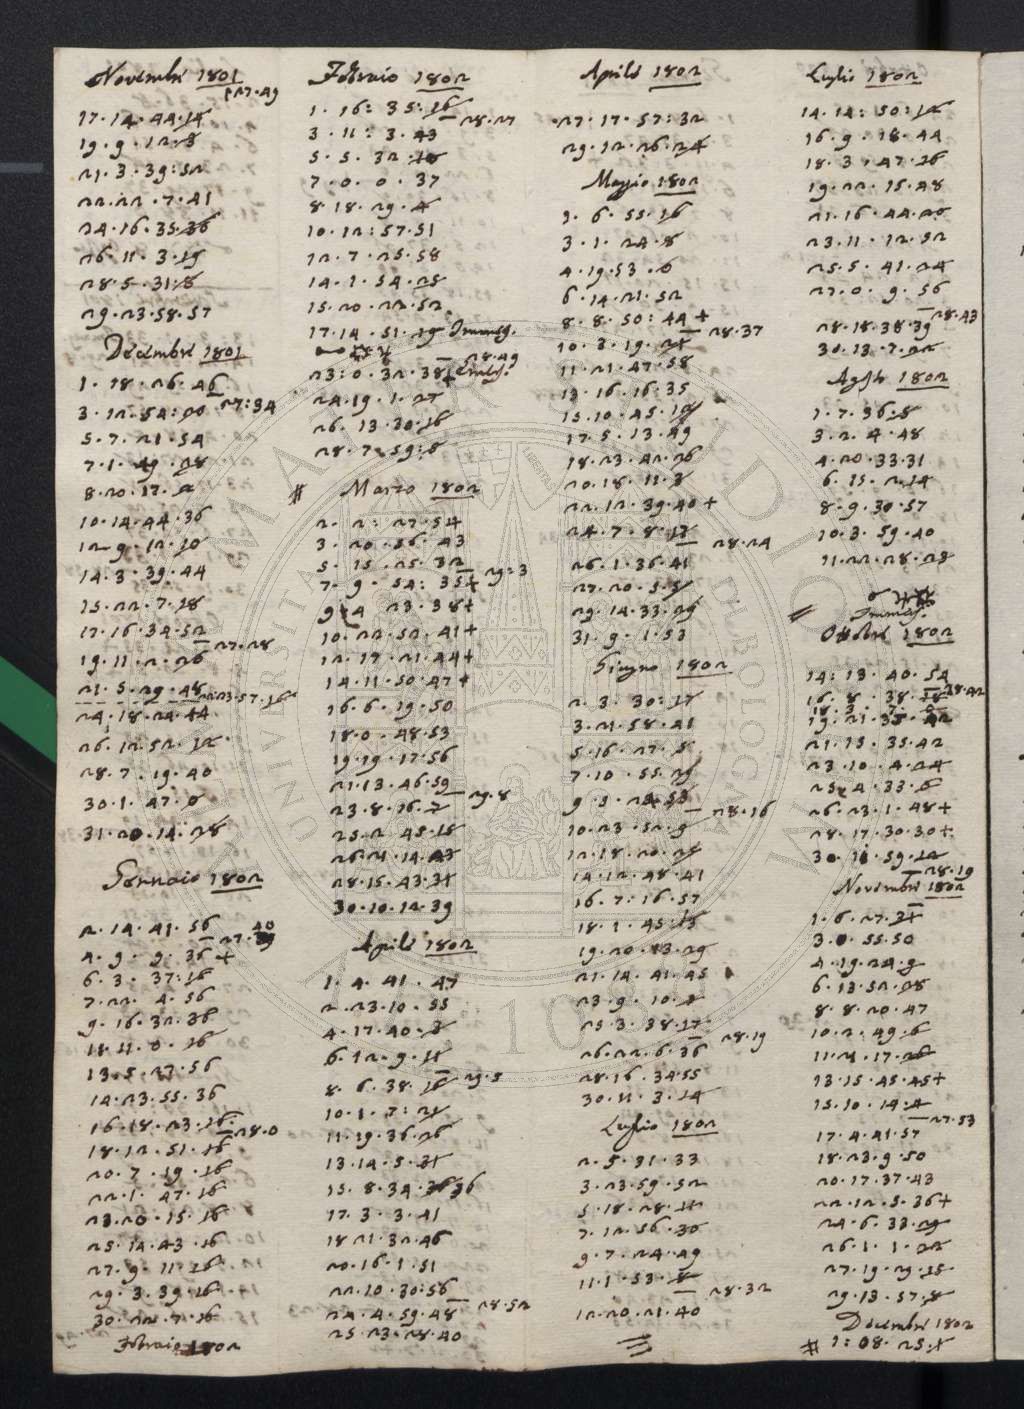 Novembre 1801
27.49
17.14.44.14
19.9.12.8
21.3.39:52
22.22.7.41
24.16.35.36
26.11.3.19
28.5.31:8
29.23.58.57
Decembre 1801
1.18.26.46
3.12.54:20 27:34
5.7.21.54
7.1.49.28
8.20.17.2
10.14.44.36
12.9.12.10
14.3.39.44
15.22.7.18
17.16.34.52
19.11.2.26 27.28
21.5.29.48
24.18.24.44
26.12.52.12
28.7.19.40
30.1.47.8
31.20.14.28
Gennaio 1802
2.14.41.56
4.9.9.36+
6.3.37:16
7.22.4.56
9.16.32.36
11.11.0.16
13.5.27.56
14.23.55.36
16.18.23.16
18.12.51.16 28.0
20.7.19.16
22.1.47.16
23.20.15.16
25.14.43.16
27.9.11.16
29.3.39.16
30.22.7.16
Febraio 1802
Febraio 1802
1.16:35:16
3.11:3.43 28.27
5.5.32.10
7.0.0.37
8.18.29.4
10.12:57.31
12.7.25.58
14.1.54.25
15.20.22.52
17.14.51.19 Immerg.
28.49
23:0.32.38+
24.19.1.27
26.13.30.16
28.7.59:5
# Marzo 1802
2.2:27.54
3.20.56.43
5.15.25.32
7.9.54:35+ 29:3
9.4.23.38+
10.22.52.41+
12.17.21.44+
14.11.50.47+
16.6.19.50
18.0.48.53
19.19.17.56
21.13.46.59
23.8.16.7 29.8
25.2.45.15
26.21.14.23
28.15.43.31
30.10.12.39
Aprile 1802
1.4.41.47
2.23.10.55
4.17.40.3
6.12.9.11
8.6.38.16 29.5
10.1.7:21
11.19.36.26
13.14.5.31
15.8.34.36
17.3.3.41
18.21.32.46
20.16.1.51
22.10.30:56
24.4.59.48 28.52
25.23.28.40
Aprile 1802
27.17.57:32
29.12.26.24
Maggio 1802
1.6.55.16
3.1.24.8
4.19.53.0
6.14.21.52
8.8.50:44+
10.3.19.21 28.37
11.21.47.58
13.16.16.35
15.10.45.12
17.5.13.49
18.23.42.26
20.18.11.3
22.12.39.40+
24.7.8.17
26.1.36.41 28.24
27.20.5.5
29.14.33.29
31.9.1.53
Giugno 1802
2.3:30:17
3.21.58.41
5.16.27.5
7.10.55.29
9.5.23.53
10.23.52.9 28.16
12.18.20.25
14.12.48.41
16.7:16.57
18.1.45:13
19.20.13.29
21.14.41.45
23.9.10.1
25.3.38.17
26.22.6.36 28.19
28.16.34.55
30.11.3.14
Luglio 1802
2.5.31.33
3.23.59.52
5.18.28.11
7.12.56.30
9.7.24.49
11.1.53.8
12.20.21.40 28.32
Luglio 1802
14.14:50:12
16.9.18.44
18.3.47.16
19.22.15.48
21.16.44.20
23.11.12.52
25.5.41.24
27.0.9.56
28.18.38.39 28.43
30.13.7.22
1802
1.7.36.5
3.2.4.48
4.20.33.31
6.15.2.14
8.9.30.57
10.3.59.40
11.22.28.23
Immerg.
Ottobre 1802
14:13.40.54
28.42
19.21.35.42
21.15.35.42
23.10.4.24
25.4.33.6
26.23.1.48+
28.17.30.30+
30.11.59.12
28.19
Novembre 1802
1.6.27.31
3.0.55.50
4.19.24.9
6.13.52.28
8.8.20.47
10.2.49.6
11.21.17.26
13.15.45.45+
15.10.14.4
17.4.41.57 27.53
18.23.9.50
20.17.37.43
22.12.5.36+
24.6.33.29
26.1.1.22
27.19.29.15
29.13.57.8
Decembre 1802
# 1:08.25.1